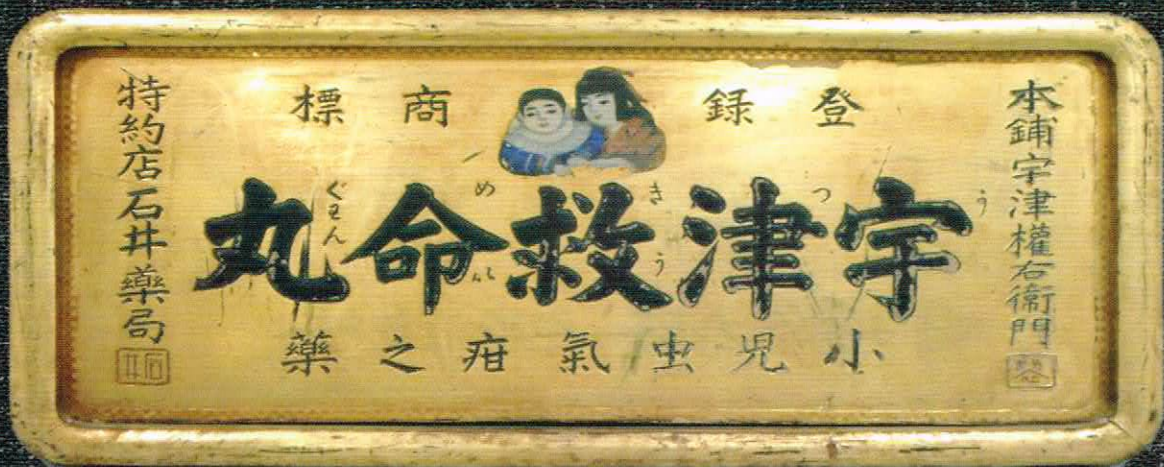 本鋪宇津權右衞門
登録商標
宇津救命丸
うつきうめいぐわん
小児虫氣疳之藥
特約店石井藥局
石井